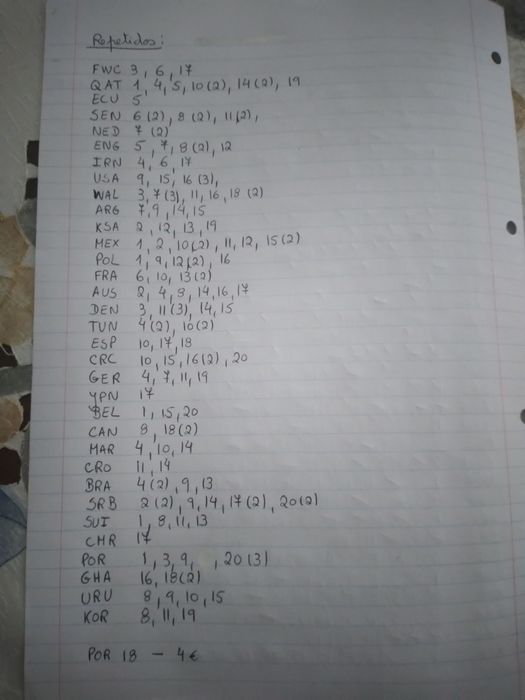 Repetidos:
FWC 3, 6, 17
QAT 1, 4, 5, 10(2), 14(2), 19
ECU 5
SEN 6(2), 8(2), 11(2),
NED 7(2)
ENG 5, 7, 8(2), 12
IRN 4, 6, 17
USA 9, 15, 16(3),
WAL 3, 7(3), 11, 16, 18(2)
ARG 7, 9, 14, 15
KSA 2, 12, 13, 19
MEX 1, 2, 10(2), 11, 12, 15(2)
POL 1, 9, 12(2), 16
FRA 6, 10, 13(2)
AUS 2, 4, 8, 14, 16, 17
DEN 3, 11(3), 14, 15
TUN 4(2), 10(2)
ESP 10, 17, 18
CRC 10, 15, 16(2), 20
GER 4, 7, 11, 19
YPN 17
BEL 1, 15, 20
CAN 8, 18(2)
MAR 4, 10, 14
CRO 11, 14
BRA 4(2), 9, 13
SRB 2(2), 9, 14, 17(2), 20(2)
SUI 1, 8, 11, 13
CMR 17
POR 1, 3, 9, , 20(3)
GHA 16, 18(2)
URU 8, 9, 10, 15
KOR 8, 11, 19
POR 18 - 4€